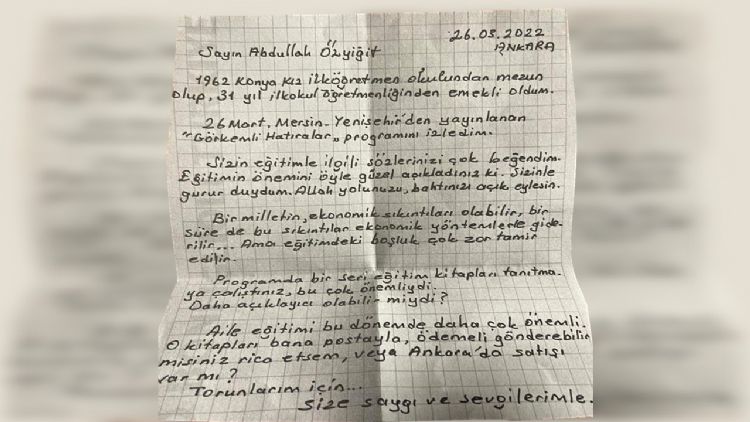 26.03.2022
ANKARA
Sayın Abdullah Özyiğit
1962 Konya kız ilköğretmen okulundan mezun
olup, 31 yıl ilkokul öğretmenliğinden emekli oldum.
26 Mart, Mersin-Yenişehir'den yayınlanan
"Görkemli Hatıralar" programını izledim.
Sizin eğitimle ilgili sözlerinizi çok beğendim.
Eğitimin önemini öyle güzel açıkladınız ki. Sizinle
gurur duydum. Allah yolunuzu, bahtınızı açık eylesin.
Bir milletin, ekonomik sıkıntıları olabilir, bir
süre de bu sıkıntılar ekonomik yöntemlerle gide-
rilir... Ama eğitimdeki boşluk çok zor tamir
edilir.
Programda bir seri eğitim kitapları tanıtma-
ya çalıştınız, bu çok önemliydi.
Daha açıklayıcı olabilir miydi?
Aile eğitimi bu dönemde daha çok önemli.
O kitapları bana postayla, ödemeli gönderebilir
misiniz rica etsem, veya Ankara'da satışı
var mı?
Torunlarım için...
Size saygı ve sevgilerimle.